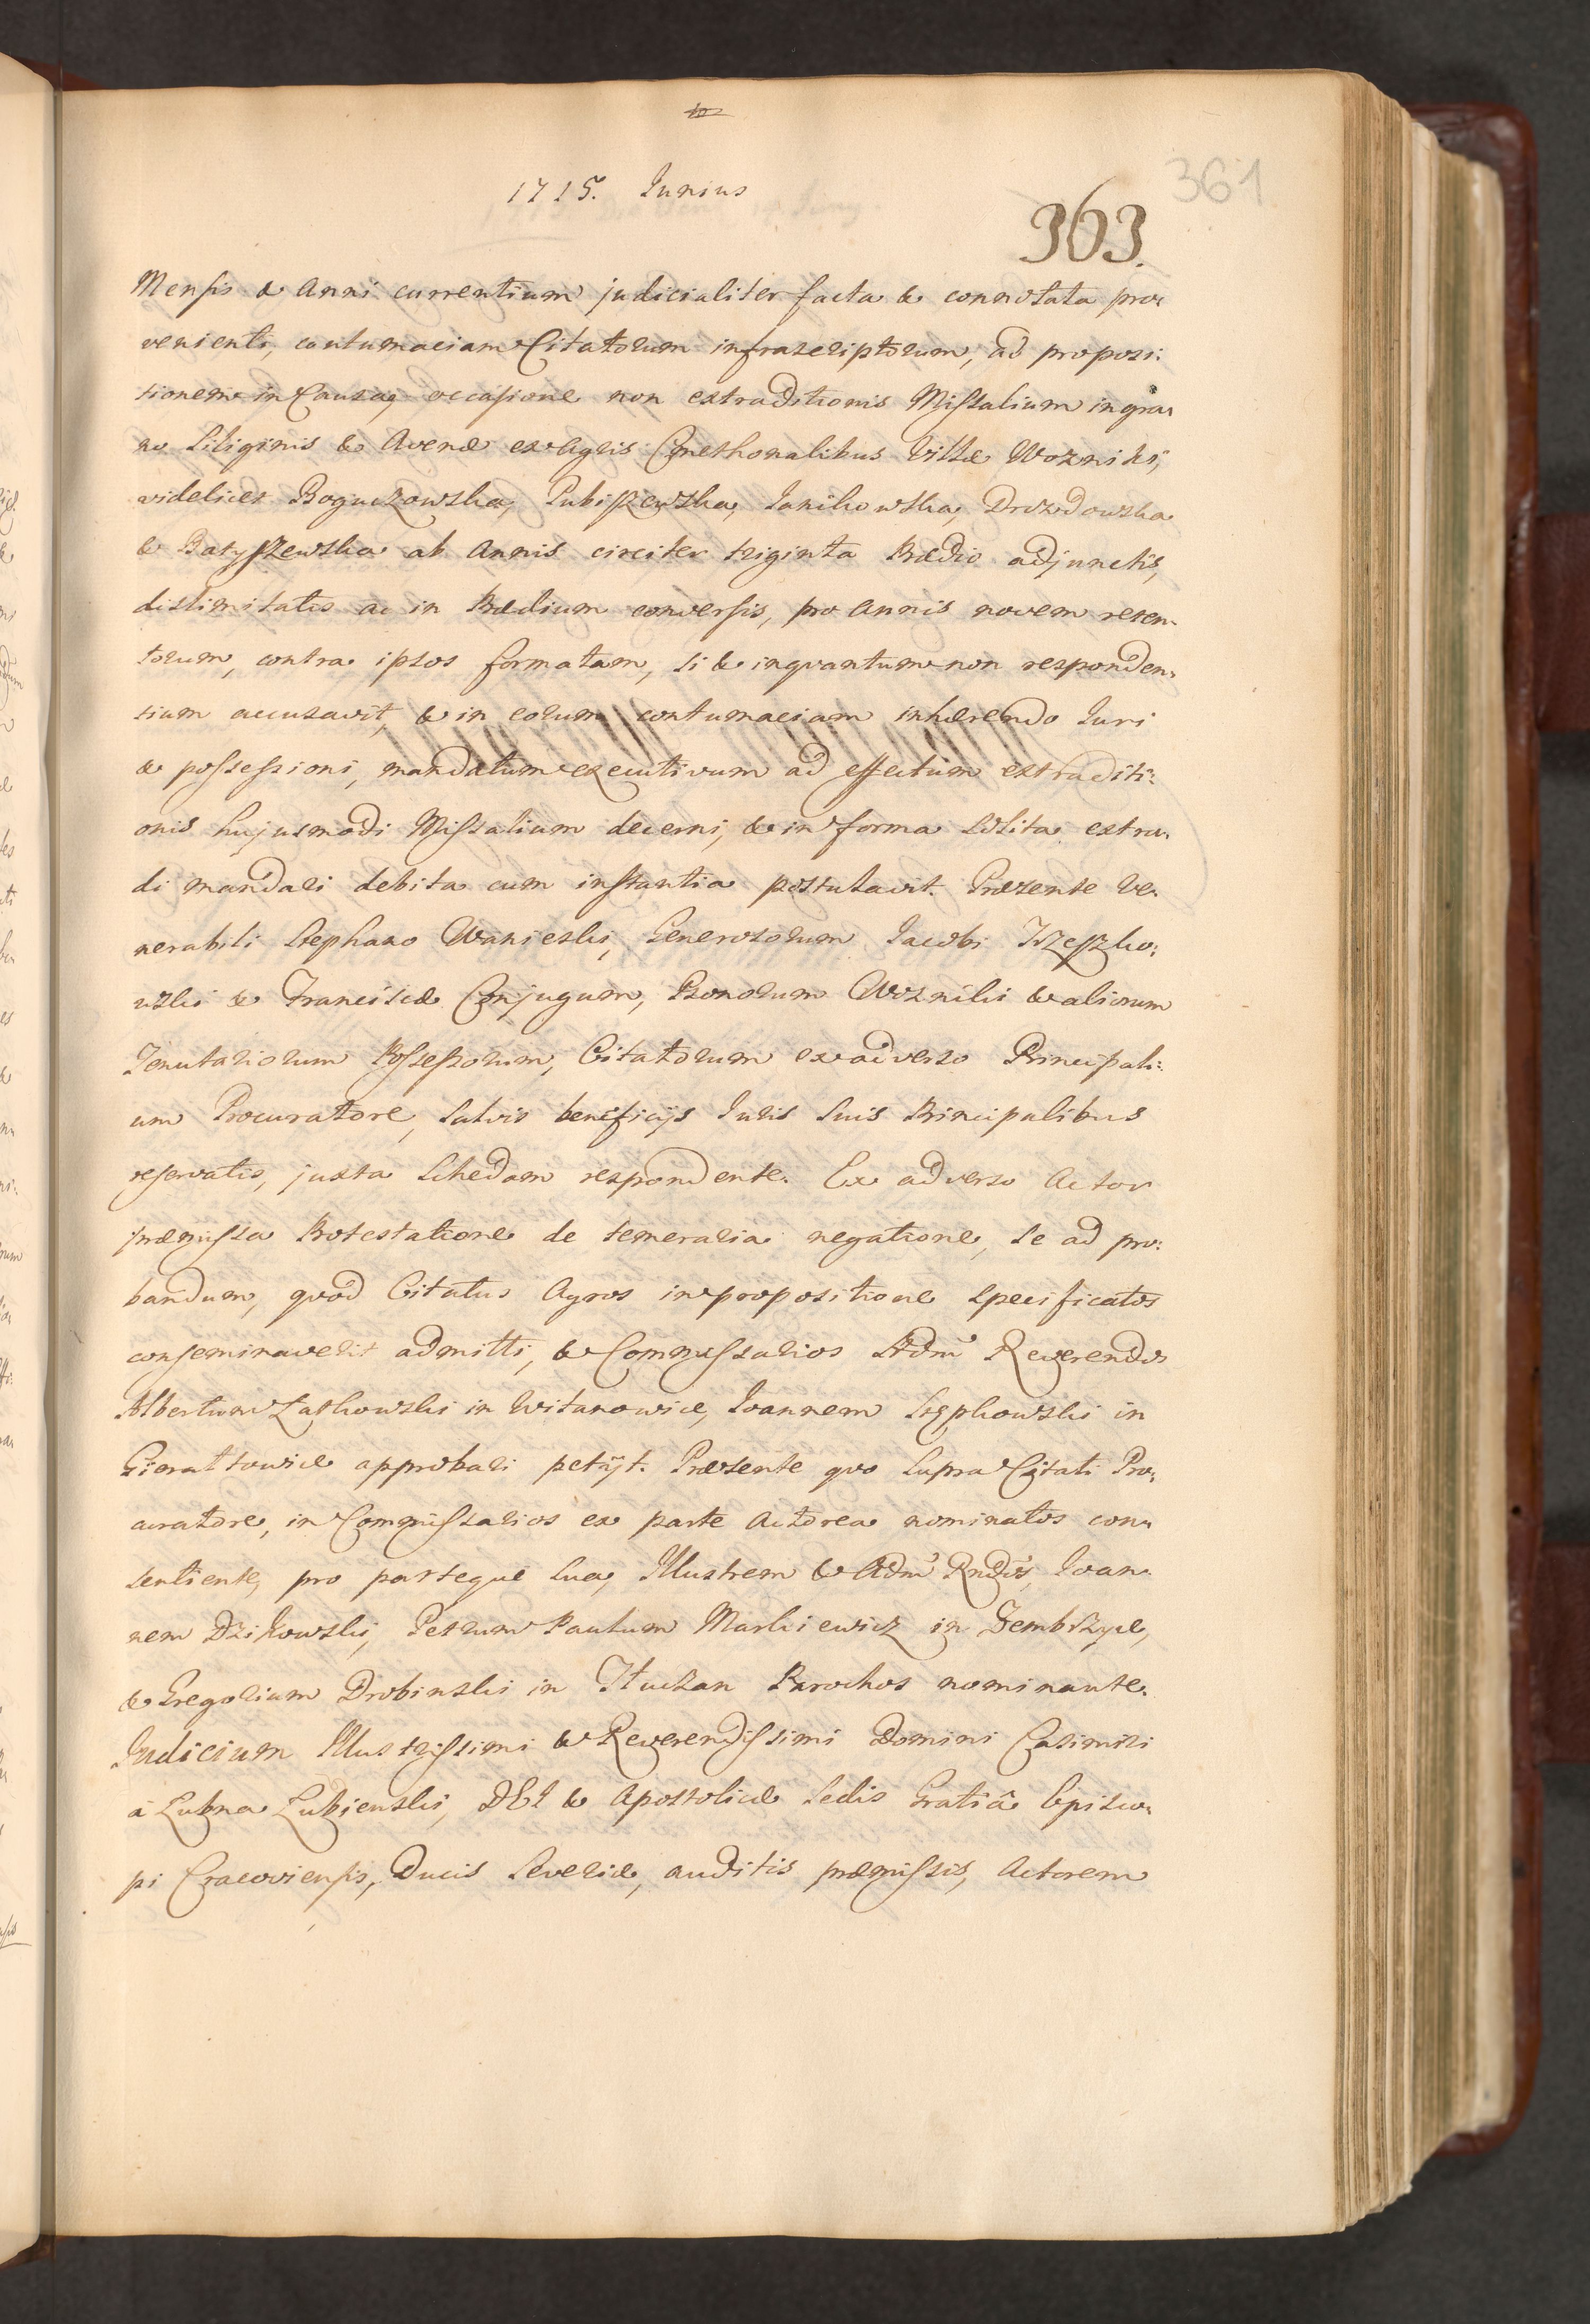 1715. Junius
361
363.
Mensis & Anni currentium judicialiter facta & connotata pro-
venienti, contumaciam Citatorum infrascriptorum, ad proposi:
tionem in Causa, occasione non extraditionis Missalium in gra-
no Siliginis & Avenæ ex Agris Cmethonalibus Villæ Wozniki,
videlicet Boguczowska, Pubiszewska, Janikowska, Drozdowska
& Batyszewska ab Annis circiter triginta Prædio adjunctis,
dislimitatis ac in Prædium conversis, pro Annis novem reten-
torum, contra ipsos formatam, si & inquantum non responden-
tium accusavit, & in eorum contumaciam inhærendo Juri
& possessioni, mandatum executivum ad effectum extraditi:
onis hujusmodi Missalium decerni, & in forma solita extra-
di mandari debita cum instantia postulavit. Præsente Ve-
nerabili Stephano Wanieski, Generosorum Jacobi Trzeszko:
wski & Franciscæ Conjugum, Bonorum Wozniki & aliorum
Tenutariorum Possessorum, Citatorum ex adverso Principali:
um Procuratore, salvis beneficijs Juris suis Principalibus
reservatis, juxta Schedam respondente. Ex adverso Actor
præmissa Protestatione de temeraria negatione, se ad pro:
bandum, quod Citatus Agros in propositione specificatos
conseminaverit admitti, & Commissarios Admŭ Reverendos
Albertum Laskowski in Witanowice, Joannem Stępkowski in
Gierałtowice approbari petijt. Præsente quo supra Citati Pro-
curatore, in Commissarios ex parte Actorea nominatos con-
sentiente, pro parteque sua, Illustrem & Admŭ Rndos, Joan-
nem Dzikowski, Petrum Paulum Markiewicz in Zembrzyce,
& Gregorium Drobinski in Tłuczan Parochos nominante.
Judicium Illustrissimi & Reverendissimi Domini Casimiri
à Lubna Lubienski, DEI & Apostolicæ Sedis Gratiâ Episco-
pi Cracoviensis, Ducis Severiæ, auditis præmissis, Actorem